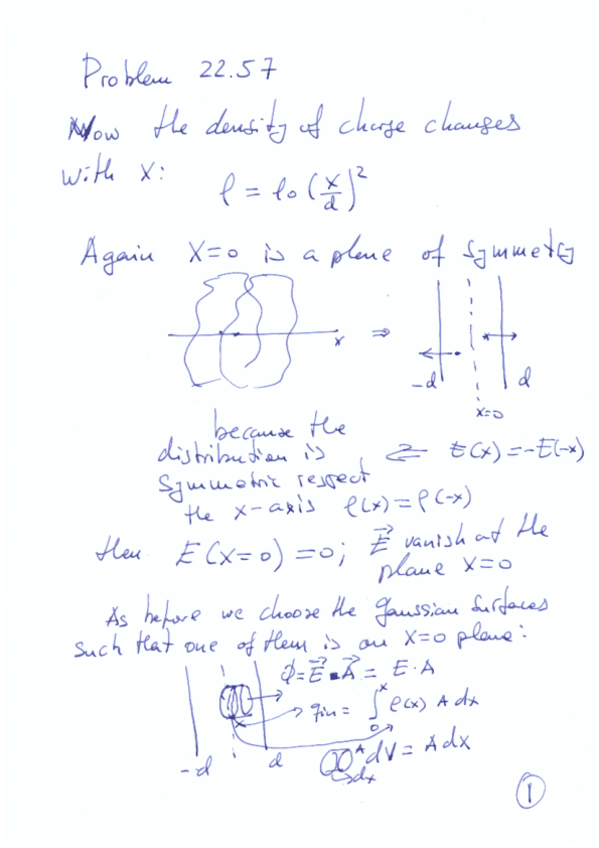 Problem 22.57
Now the density of charge changes
with x:
ρ = ρ₀ (x/d)²
Again x=0 is a plane of symmetry
x ⇒ -d d
x=0
because the
distribution is ⇐ E(x) = -E(-x)
Symmetric respect
the x-axis ρ(x) = ρ(-x)
then E(x=0) = 0; E⃗ vanish at the
plane x=0
As before we choose the gaussian surfaces
such that one of them is on x=0 plane:
Φ = E⃗ ▪ A⃗ = E · A
x → qin = ∫₀ˣ ρ(x) A dx
-d d A dV = A dx
dx
1